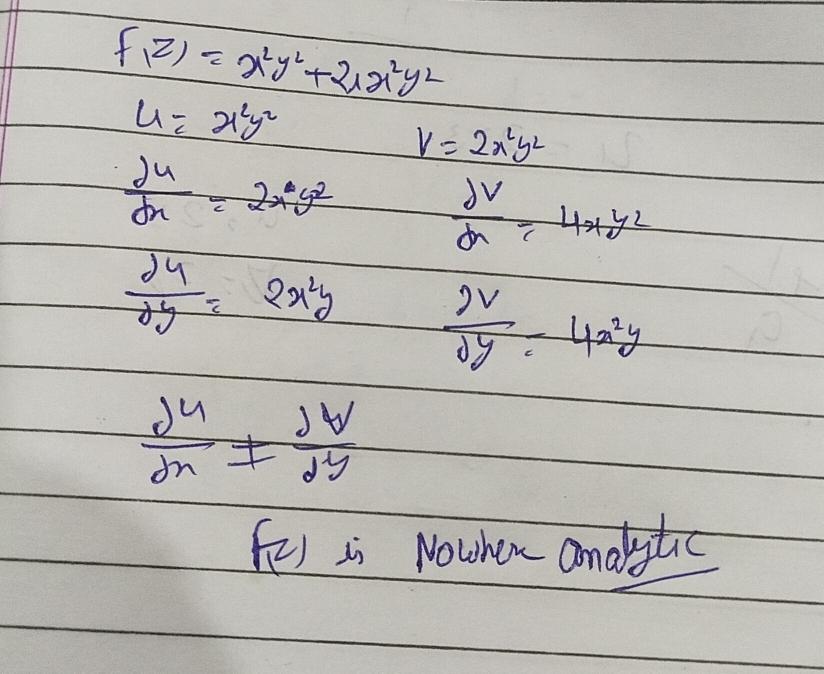 f(z) = x²y² + 2ix²y²
u = x²y² V = 2x²y²
∂u/∂x = 2xy² ∂V/∂x = 4xy²
∂u/∂y = 2x²y ∂V/∂y = 4x²y
∂u/∂x ≠ ∂V/∂y
f(z) is Nowhere analytic